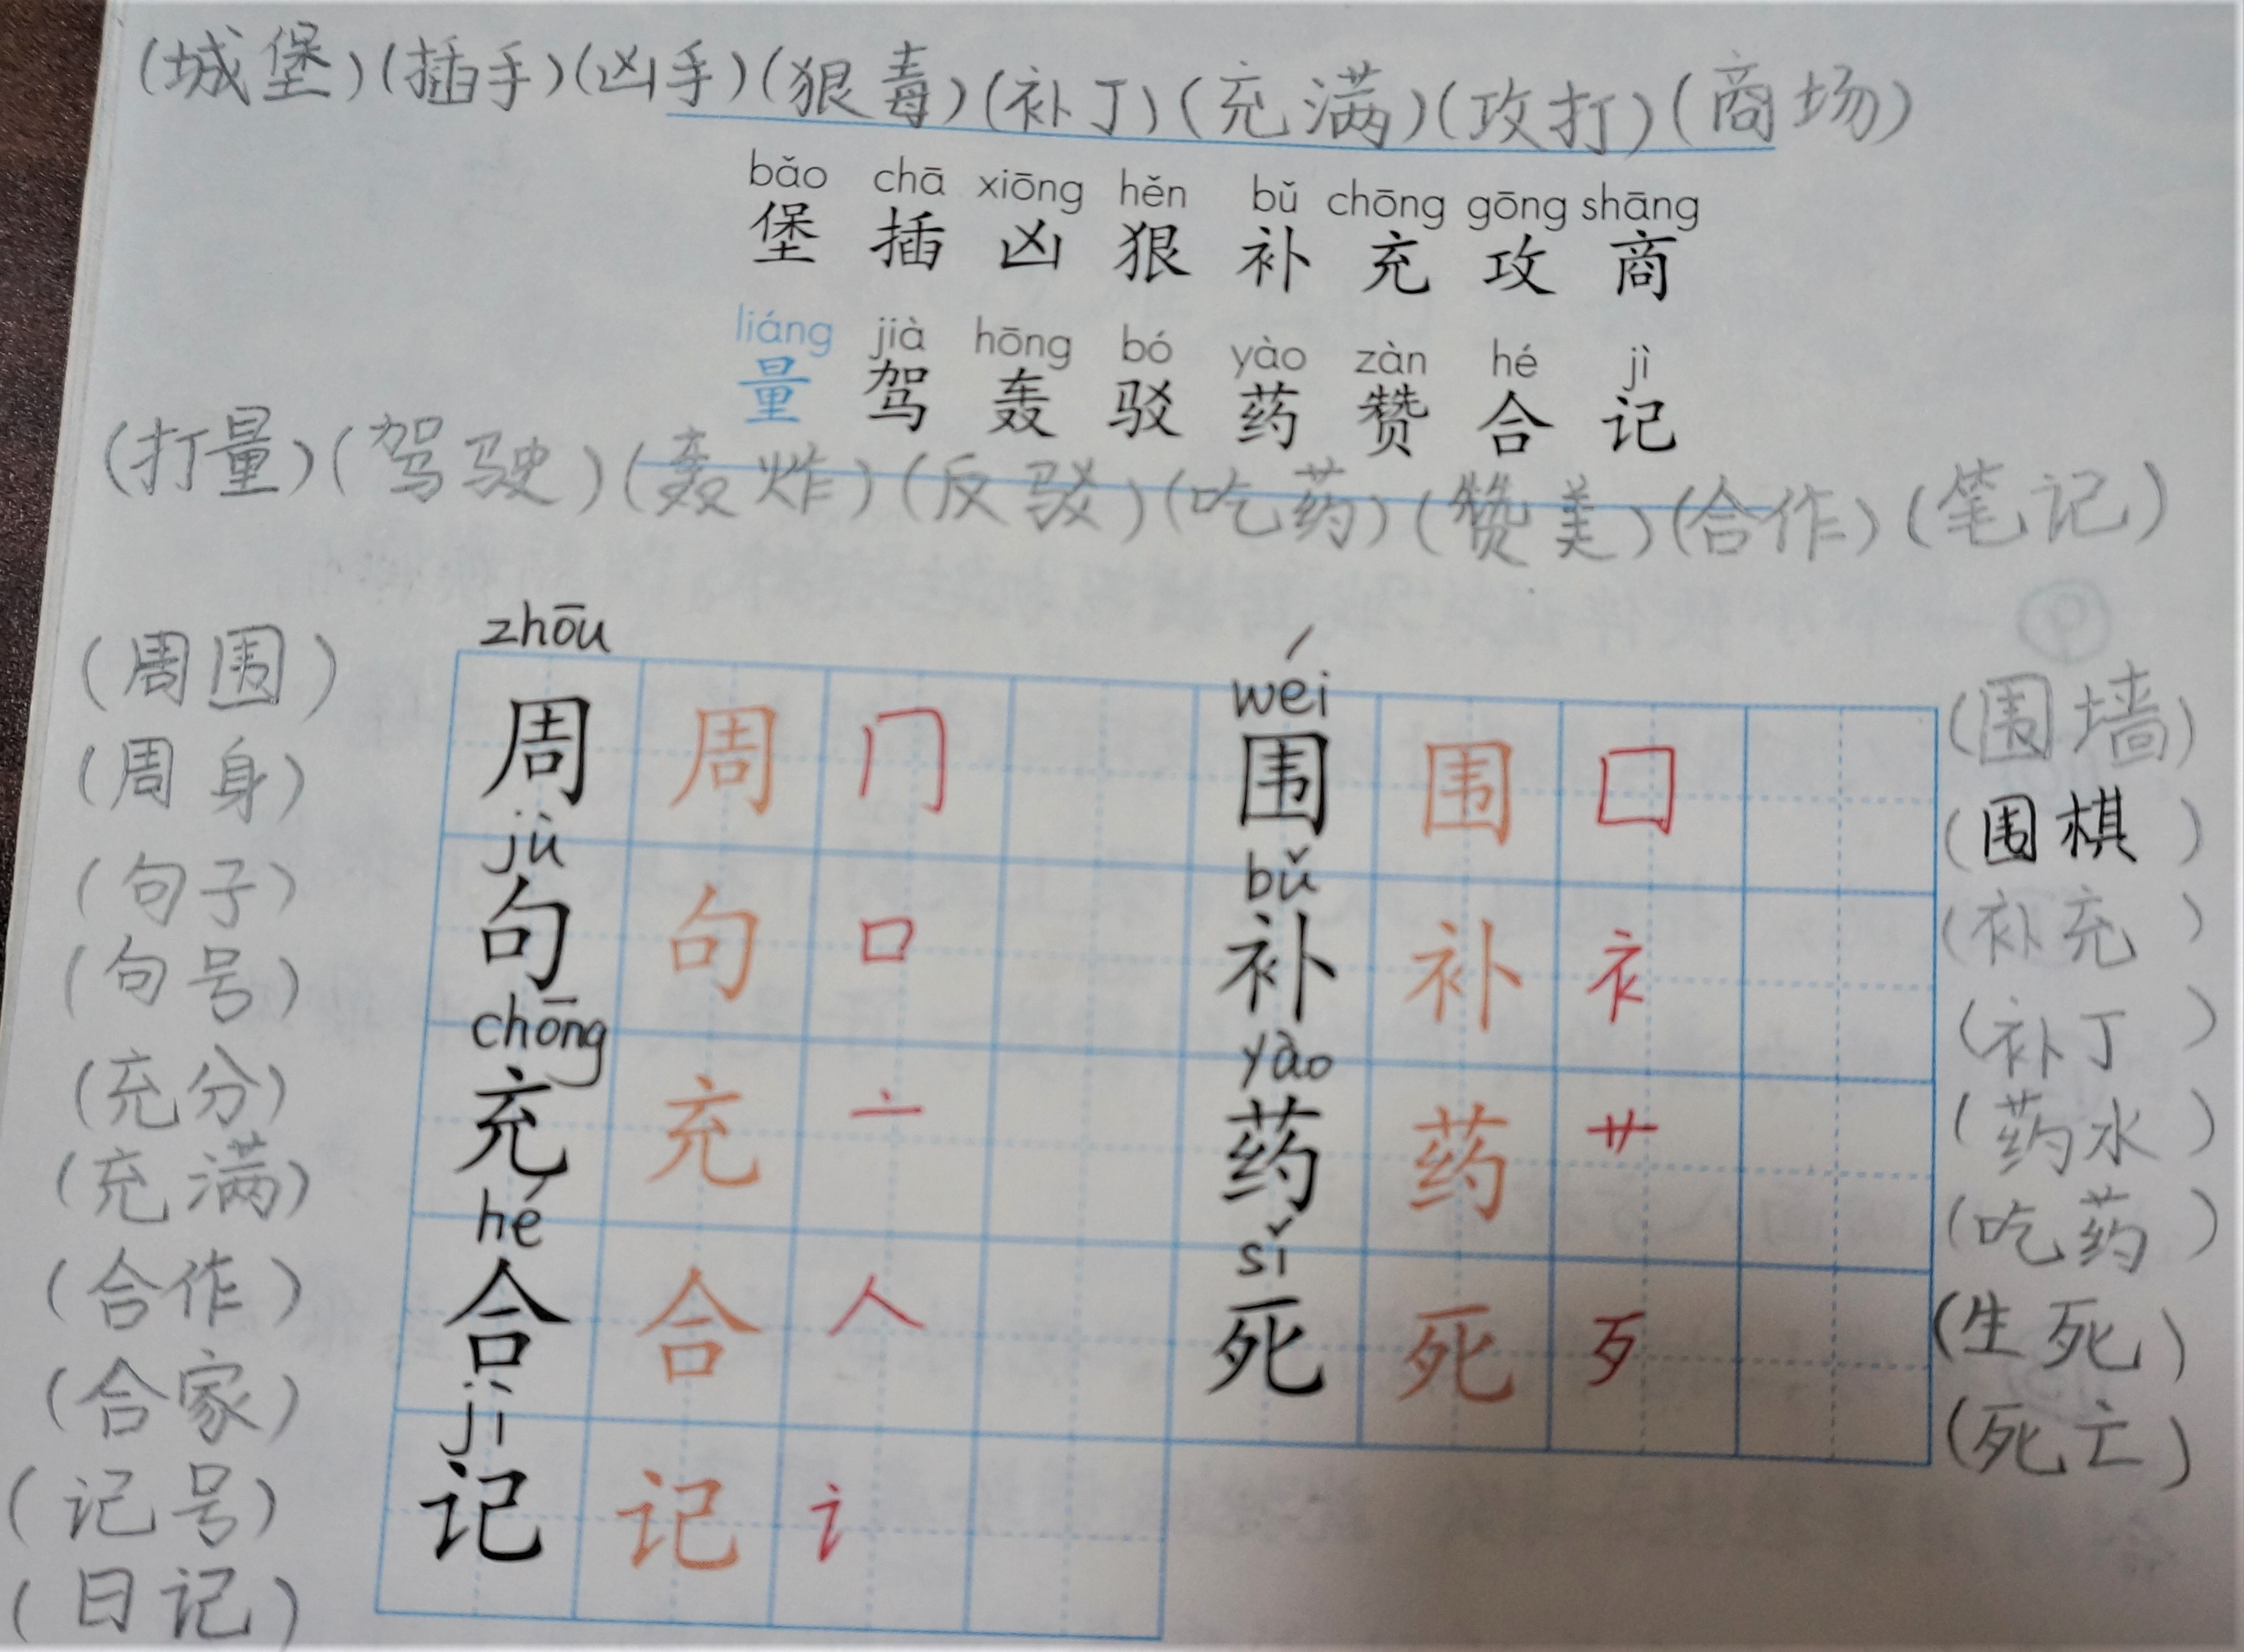 (城堡)(插手)(凶手)(狠毒)(补丁)(充满)(攻打)(商场)
bǎo chā xiōng hěn bǔ chōng gōng shāng
堡 插 凶 狠 补 充 攻 商
liáng jià hōng bó yào zàn hé jì
量 驾 轰 驳 药 赞 合 记
(打量)(驾驶)(轰炸)(反驳)(吃药)(赞美)(合作)(笔记)
zhōu wéi
(周围) 周 周 冂 围 围 囗 (围墙)
(周身) (围棋)
jù bǔ
(句子) 句 句 口 补 补 衤 (补充)
(句号) (补丁)
chōng yào
(充分) 充 充 亠 药 药 艹 (药水)
(充满) (吃药)
hé sǐ
(合作) 合 合 人 死 死 歹 (生死)
(合家) (死亡)
jì
(记号) 记 记 讠
(日记)